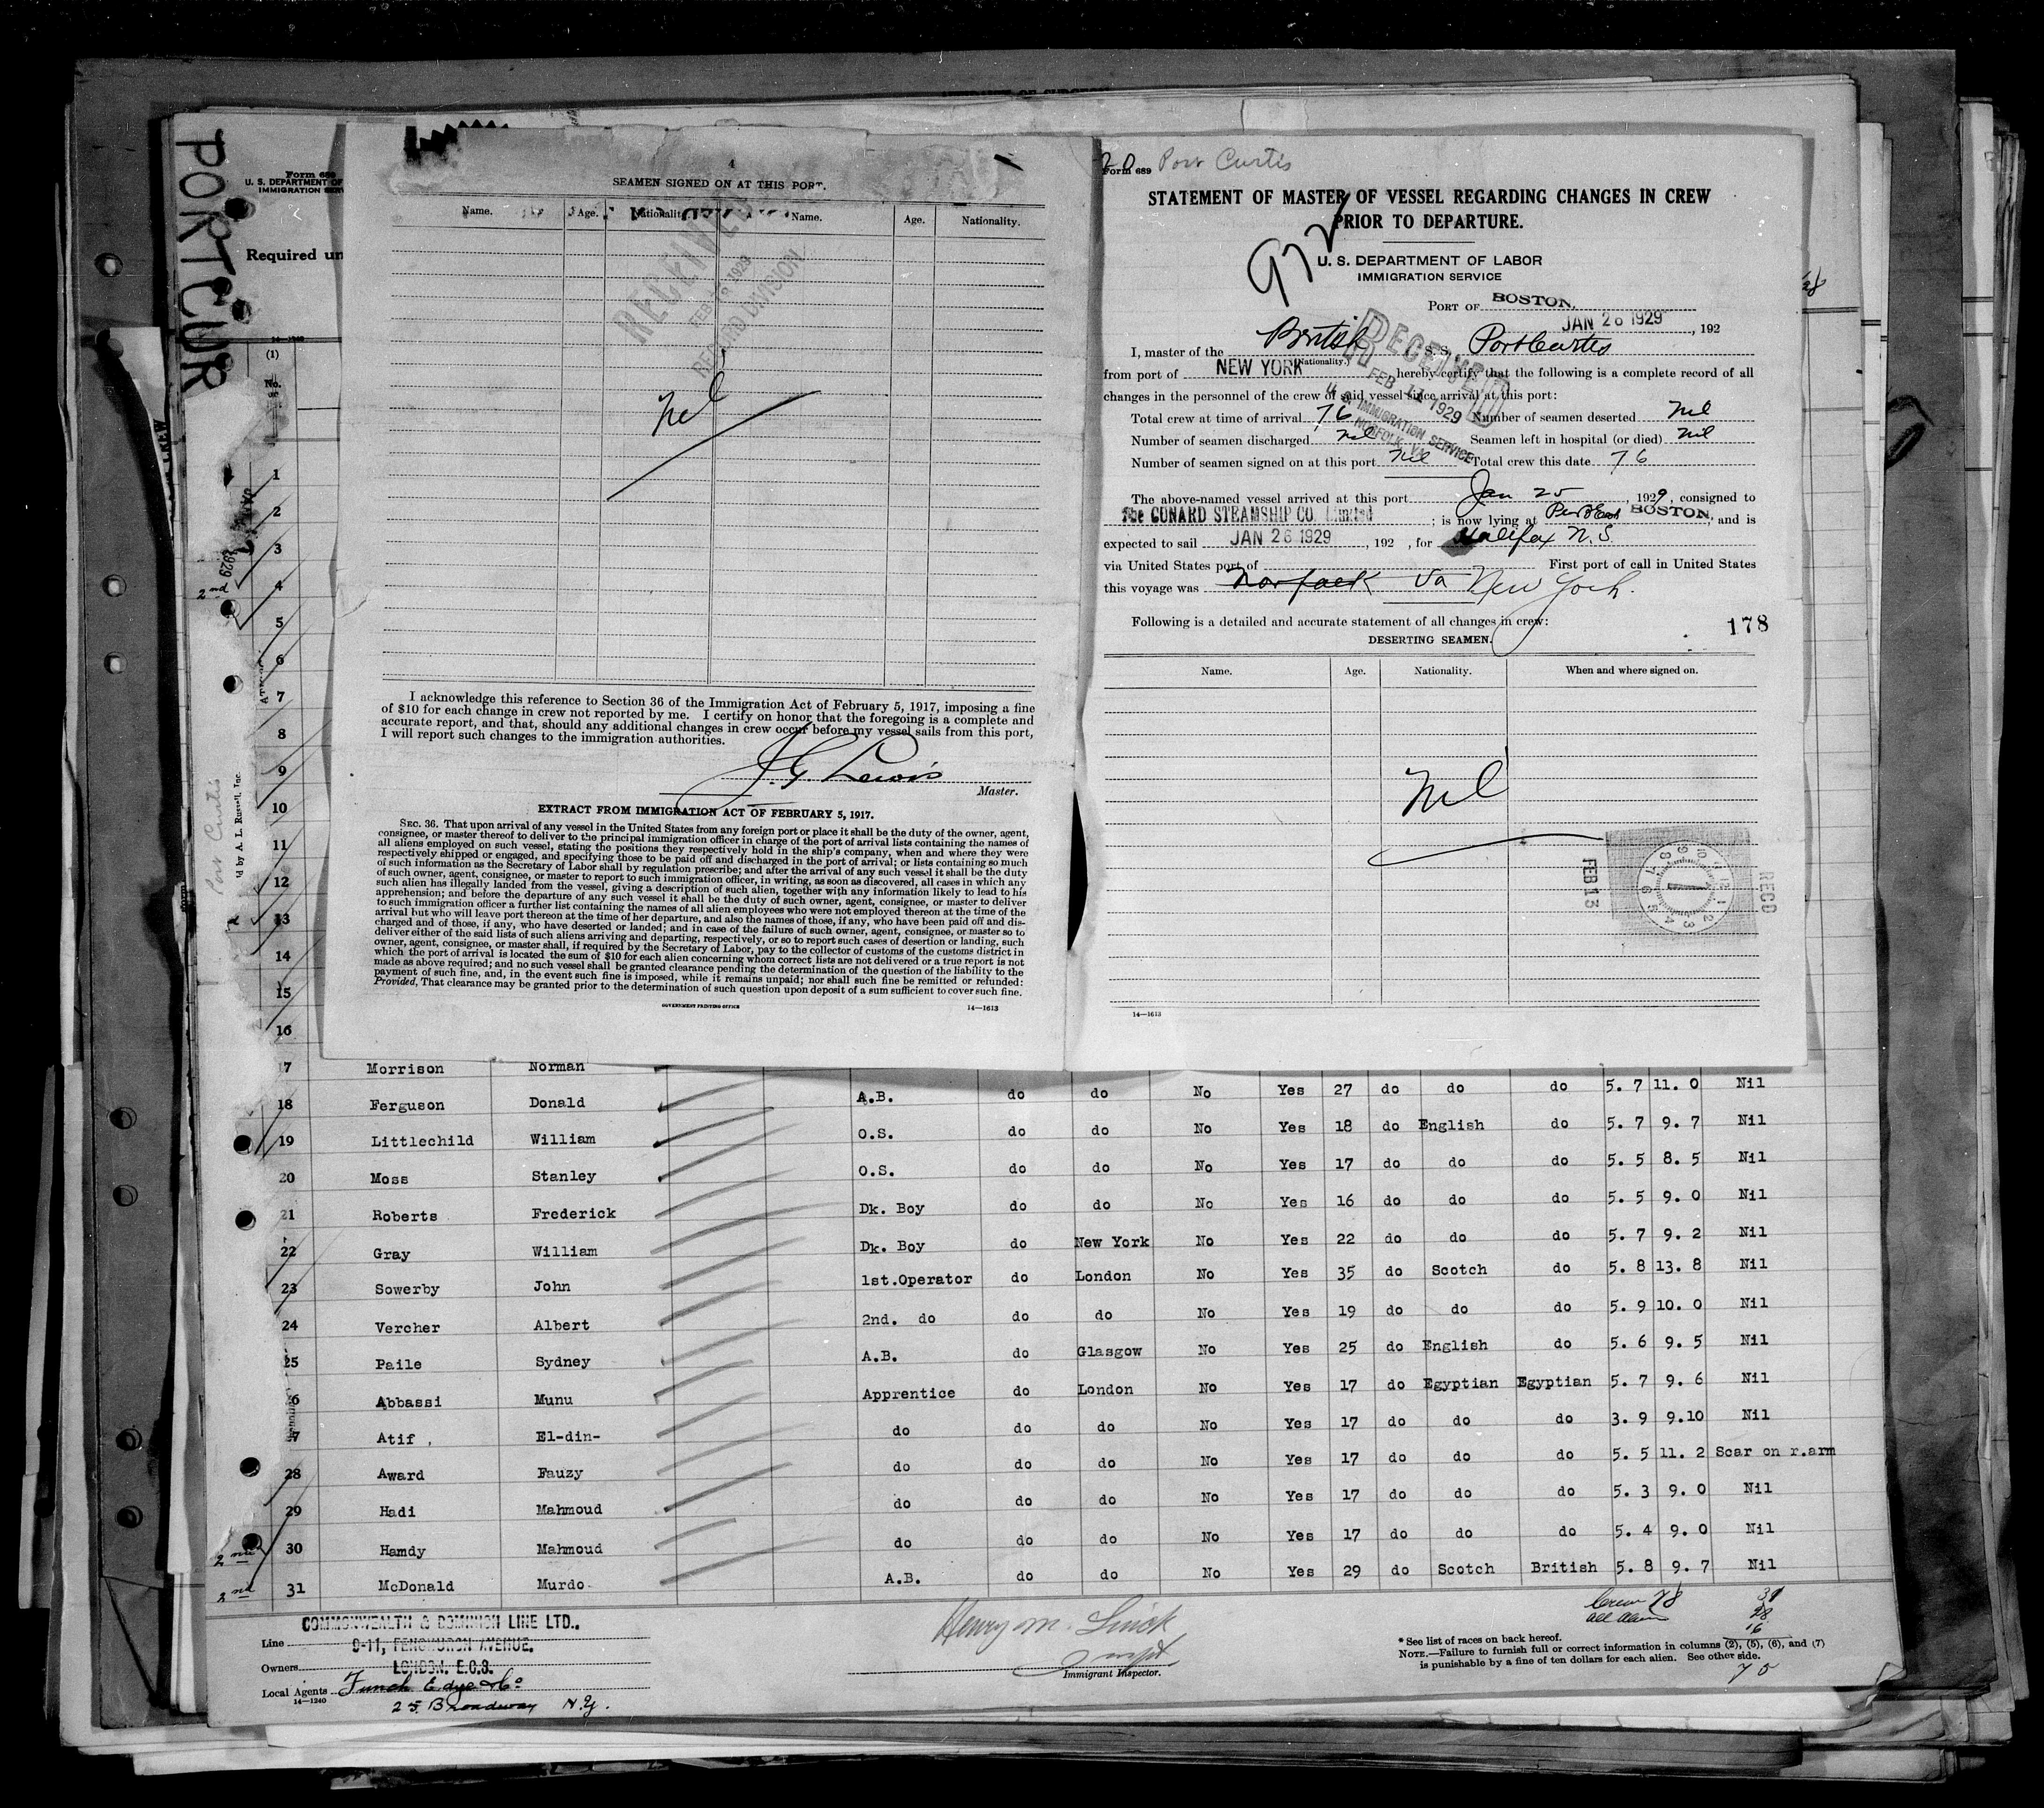 PORTCUR
Form 689
U. S. DEPARTMENT OF
IMMIGRATION SERV
Required un
14—1240
(1)
No.
on
1
2
3
4
5
6
7
8
9
10
11
12
13
14
15
16
1929
2nd
Port Curtis
'd by A. L. Russell, Inc.
4
SEAMEN SIGNED ON AT THIS PORT.
Name. Age. Nationality. Name. Age. Nationality.
RECEIVED
FEB 1929
RECORD DIVISION
Nil
I acknowledge this reference to Section 36 of the Immigration Act of February 5, 1917, imposing a fine
of $10 for each change in crew not reported by me. I certify on honor that the foregoing is a complete and
accurate report, and that, should any additional changes in crew occur before my vessel sails from this port,
I will report such changes to the immigration authorities.
J. G. Lewis
Master.
EXTRACT FROM IMMIGRATION ACT OF FEBRUARY 5, 1917.
SEC. 36. That upon arrival of any vessel in the United States from any foreign port or place it shall be the duty of the owner, agent,
consignee, or master thereof to deliver to the principal immigration officer in charge of the port of arrival lists containing the names of
all aliens employed on such vessel, stating the positions they respectively hold in the ship's company, when and where they were
respectively shipped or engaged, and specifying those to be paid off and discharged in the port of arrival; or lists containing so much
of such information as the Secretary of Labor shall by regulation prescribe; and after the arrival of any such vessel it shall be the duty
of such owner, agent, consignee, or master to report to such immigration officer, in writing, as soon as discovered, all cases in which any
such alien has illegally landed from the vessel, giving a description of such alien, together with any information likely to lead to his
apprehension; and before the departure of any such vessel it shall be the duty of such owner, agent, consignee, or master to deliver
to such immigration officer a further list containing the names of all alien employees who were not employed thereon at the time of the
arrival but who will leave port thereon at the time of her departure, and also the names of those, if any, who have been paid off and dis-
charged and of those, if any, who have deserted or landed; and in case of the failure of such owner, agent, consignee, or master so to
deliver either of the said lists of such aliens arriving and departing, respectively, or so to report such cases of desertion or landing, such
owner, agent, consignee, or master shall, if required by the Secretary of Labor, pay to the collector of customs of the customs district in
which the port of arrival is located the sum of $10 for each alien concerning whom correct lists are not delivered or a true report is not
made as above required; and no such vessel shall be granted clearance pending the determination of the question of the liability to the
payment of such fine, and, in the event such fine is imposed, while it remains unpaid; nor shall such fine be remitted or refunded:
Provided, That clearance may be granted prior to the determination of such question upon deposit of a sum sufficient to cover such fine.
GOVERNMENT PRINTING OFFICE
14—1613
20 Port Curtis
Form 689
STATEMENT OF MASTER OF VESSEL REGARDING CHANGES IN CREW
PRIOR TO DEPARTURE.
U. S. DEPARTMENT OF LABOR
IMMIGRATION SERVICE
PORT OF BOSTON.
JAN 26 1929, 192
I, master of the British S. S. Port Curtis
(Nationality.)
from port of NEW YORK hereby certify that the following is a complete record of all
changes in the personnel of the crew of said vessel since arrival at this port:
Total crew at time of arrival 76 Number of seamen deserted Nil
Number of seamen discharged nil Seamen left in hospital (or died) nil
Number of seamen signed on at this port nil Total crew this date 76
RECEIVED
FEB 11 1929
U. S. IMMIGRATION SERVICE
NORFOLK VA
The above-named vessel arrived at this port Jan 25, 1929, consigned to
The CUNARD STEAMSHIP CO. Limited; is now lying at BOSTON, and is
expected to sail JAN 26 1929, 192 , for Halifax N.S.
via United States port of First port of call in United States
this voyage was Norfolk Va New York.
Following is a detailed and accurate statement of all changes in crew:
178
DESERTING SEAMEN.
Name. Age. Nationality. When and where signed on.
Nil
FEB 13
RECD
14—1613
17 Morrison Norman
18 Ferguson Donald A.B. do do No Yes 27 do do do 5. 7 11. 0 Nil
19 Littlechild William O.S. do do No Yes 18 do English do 5. 7 9. 7 Nil
20 Moss Stanley O.S. do do No Yes 17 do do do 5. 5 8. 5 Nil
21 Roberts Frederick Dk. Boy do do No Yes 16 do do do 5. 5 9. 0 Nil
22 Gray William Dk. Boy do New York No Yes 22 do do do 5. 7 9. 2 Nil
23 Sowerby John 1st.Operator do London No Yes 35 do Scotch do 5. 8 13. 8 Nil
24 Vercher Albert 2nd. do do do No Yes 19 do do do 5. 9 10. 0 Nil
25 Paile Sydney A.B. do Glasgow No Yes 25 do English do 5. 6 9. 5 Nil
6 Abbassi Munu Apprentice do London No Yes 17 do Egyptian Egyptian 5. 7 9. 6 Nil
7 Atif , El-din- do do do No Yes 17 do do do 3. 9 9.10 Nil
28 Award Fauzy do do do No Yes 17 do do do 5. 5 11. 2 Scar on r.arm
29 Hadi Mahmoud do do do No Yes 17 do do do 5. 3 9. 0 Nil
2nd 30 Hamdy Mahmoud do do do No Yes 17 do do do 5. 4 9. 0 Nil
2nd 31 McDonald Murdo A.B. do do No Yes 29 do Scotch British 5. 8 9. 7 Nil
COMMONWEALTH & DOMINION LINE LTD.,
Line 9-11, FENCHURCH AVENUE.
Owners LONDON. E.C.3.
Local Agents Funch Edye & Co
14—1240
25 Broadway N.Y.
Henry M.
Immigrant Inspector.
Crew 78
28
16
70
* See list of races on back hereof.
NOTE.—Failure to furnish full or correct information in columns (2), (5), (6), and (7)
is punishable by a fine of ten dollars for each alien. See other side.